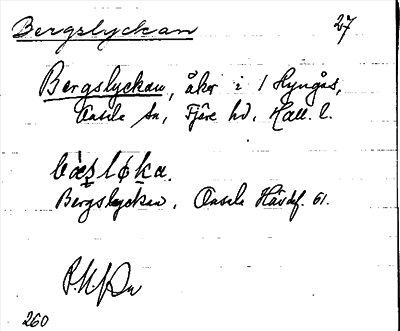 Bergslyckan 27
Bergslyckan, åker i 1 Hyngås,
Onsala sn, Fjäre hd, Hall. l.
bæs løka.
Bergslyckan, Onsala Hävdf. 61.
260